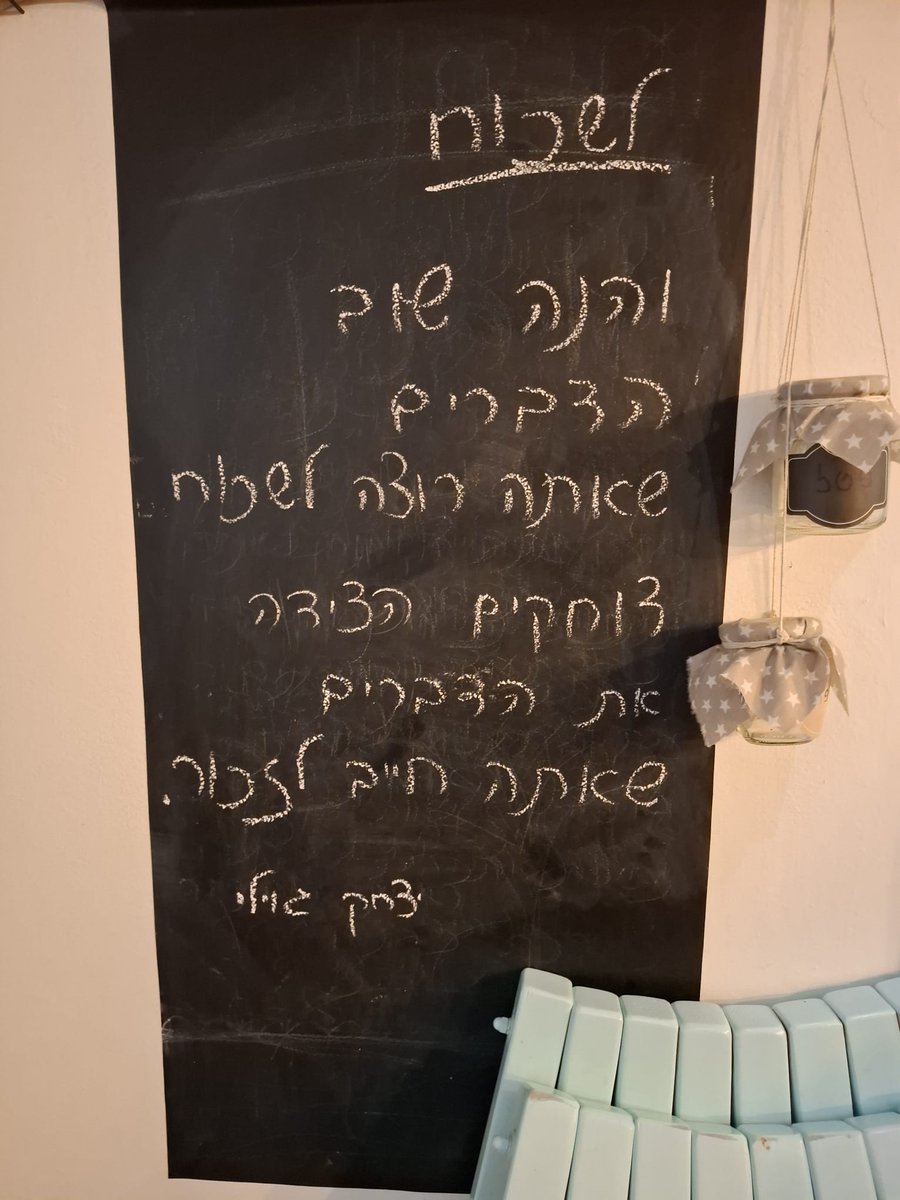 לשכוח
והנה שוב
הדברים
שאתה רוצה לשכוח
דוחקים הצידה
את הדברים
שאתה חייב לזכור.
יצחק גוילי